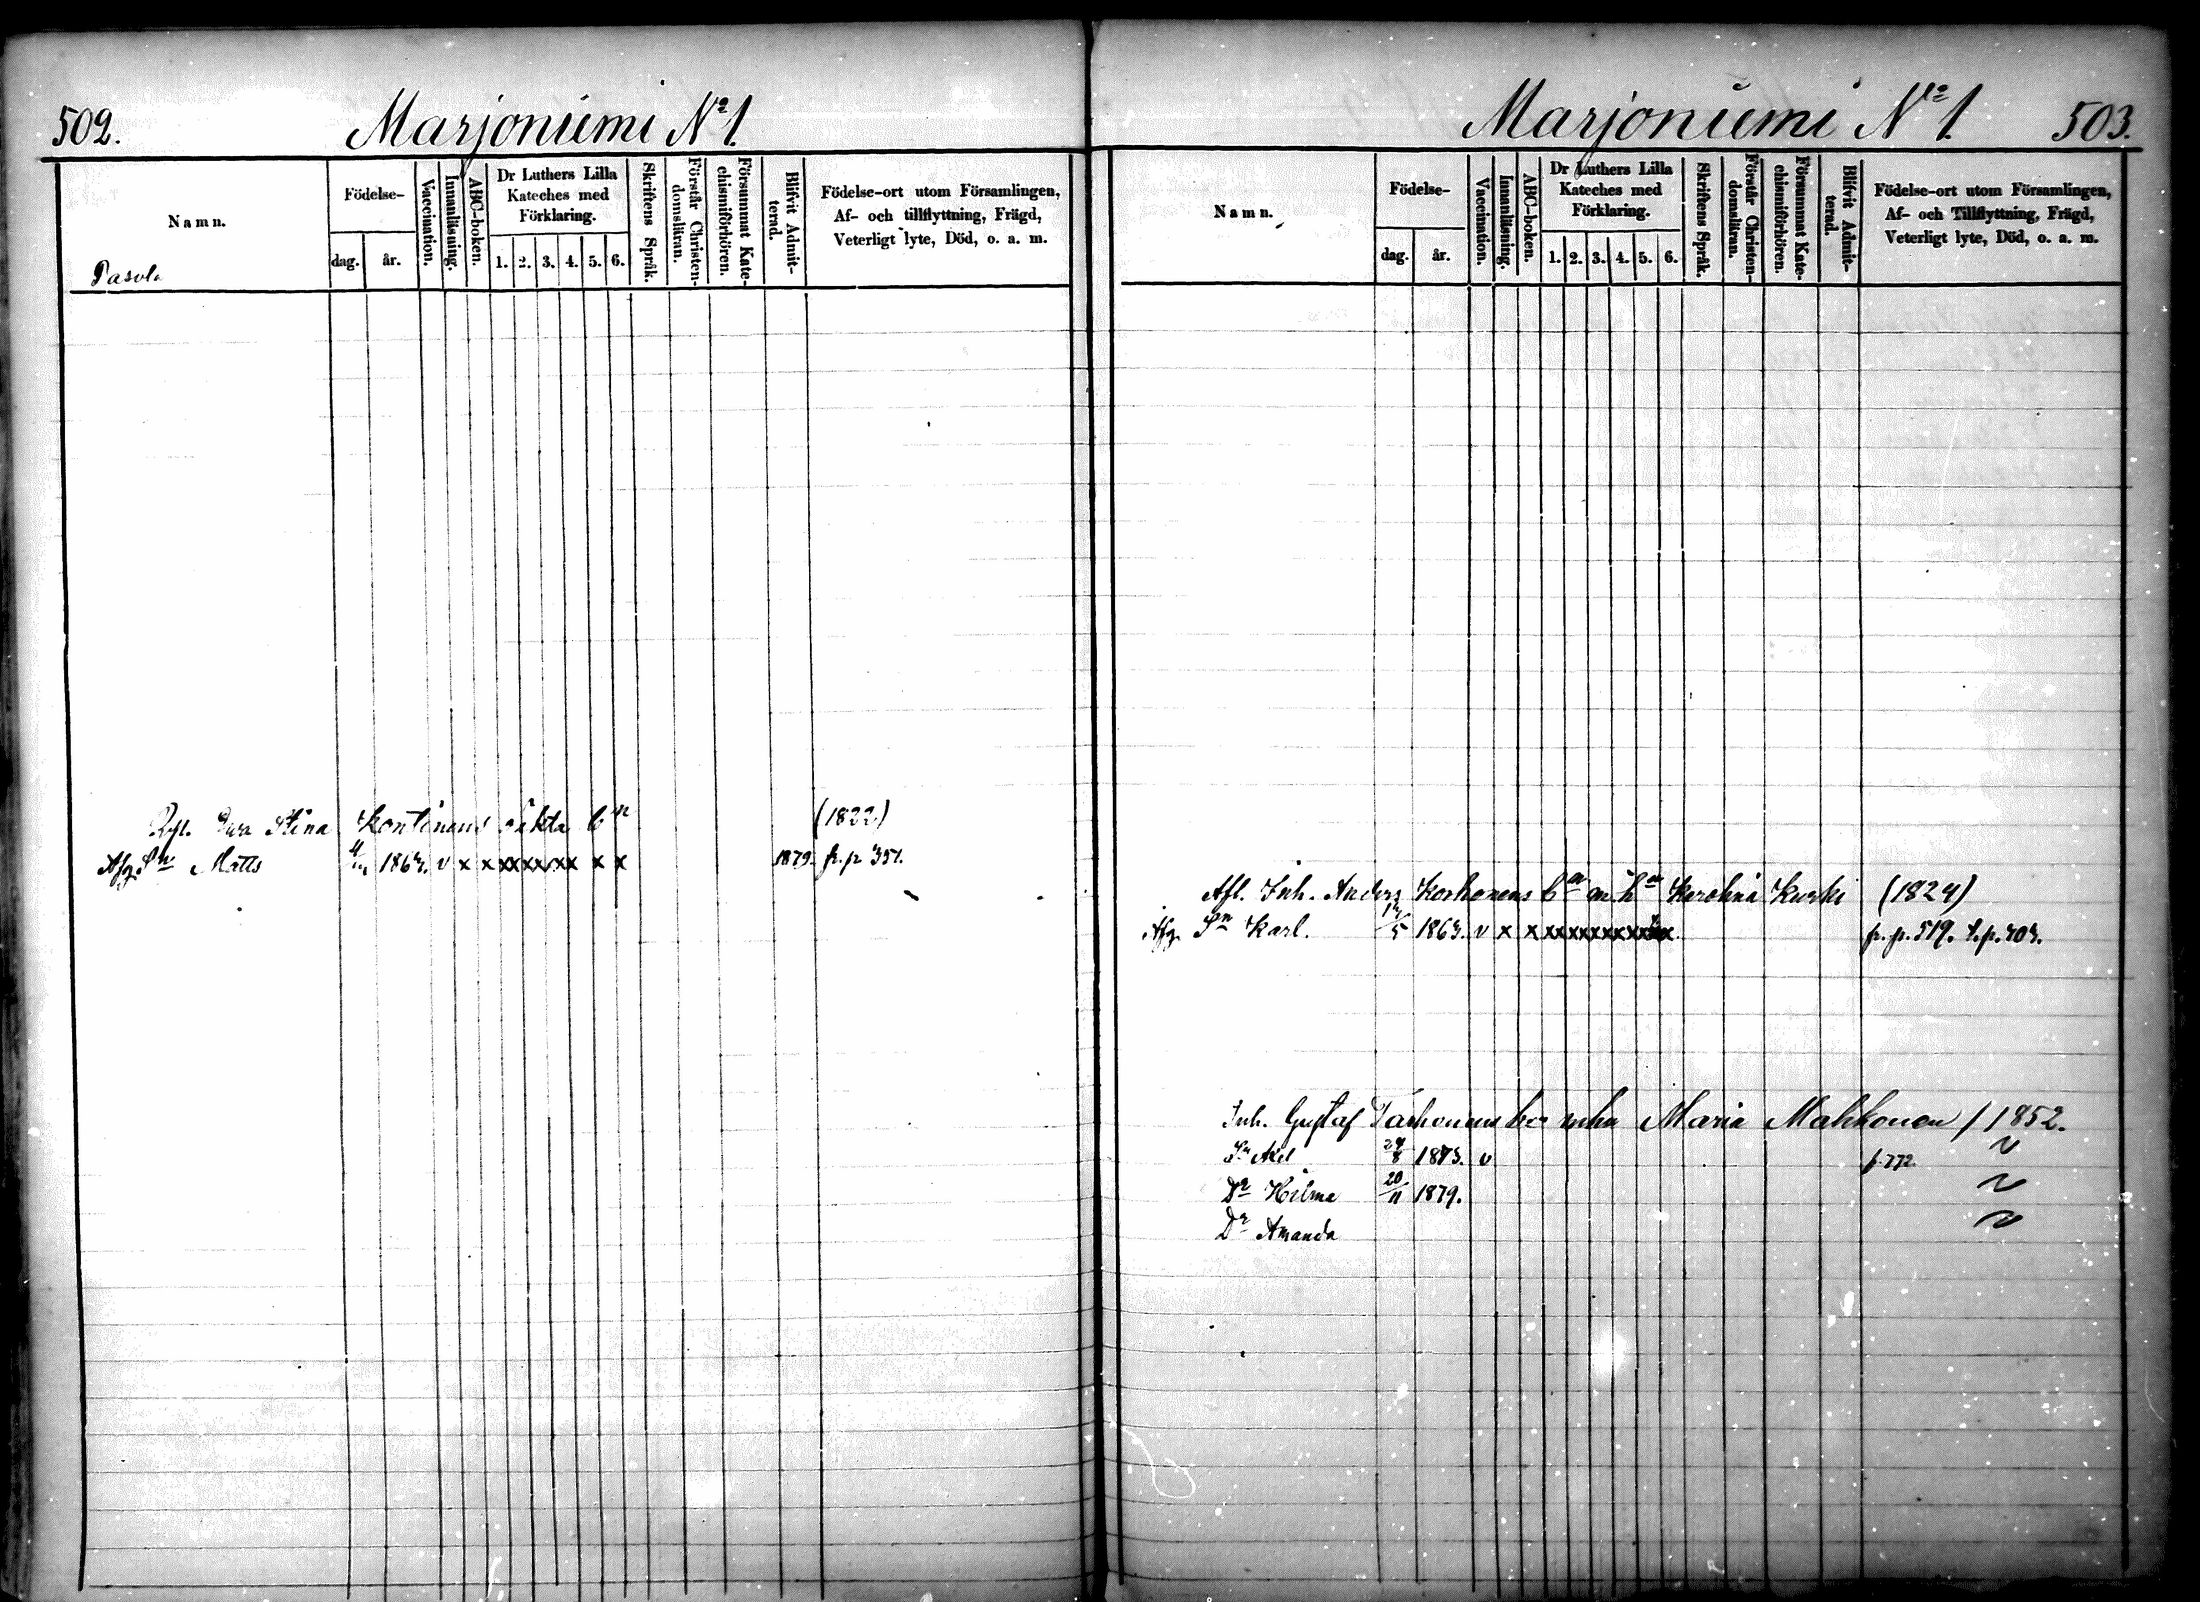 502. Marjoniemi No 1.
Namn.
Födelse-
dag. år.
Vaccination.
Innanläsning.
ABC-boken.
Dr Luthers Lilla
Kateches med
Förklaring.
1. 2. 3. 4. 5. 6.
Skriftens Språk.
Förstår Christen-
domsläran.
Försummat Kate-
chismiförhören.
Blifvit Admit-
terad.
Födelse-ort utom Församlingen,
Af- och tillflyttning, Frägd,
Veterligt lyte, Död, o. a. m.
Pasola
Stina Kontinens oäkta bn (1822)
Afg. Sn Matts 1863. v x x x x x x x x x x 1879. fr. p 351.
Marjoniemi No 1. 503.
Namn.
Födelse-
dag. år.
Vaccination.
Innanläsning.
ABC-boken.
Dr Luthers Lilla
Kateches med
Förklaring.
1. 2. 3. 4. 5. 6.
Skriftens Språk.
Förstår Christen-
domsläran.
Försummat Kate-
chismiförhören.
Blifvit Admit-
terad.
Födelse-ort utom Församlingen,
Af- och Tillflyttning, Frägd,
Veterligt lyte, Död, o. a. m.
Afl. Inh. Anders Korhonens bn m hn Karolina Kurki (1824)
Afg. Sn Karl. 1863. v x x x x x x x x x x fr. p. 519. t. p. 303.
Inh. Gustaf bar m hu Maria Makkonen / 1852.
Sn Axel 24/8 1873. v p. 772
Dr Hilma 20/11 1879.
Dr Amanda